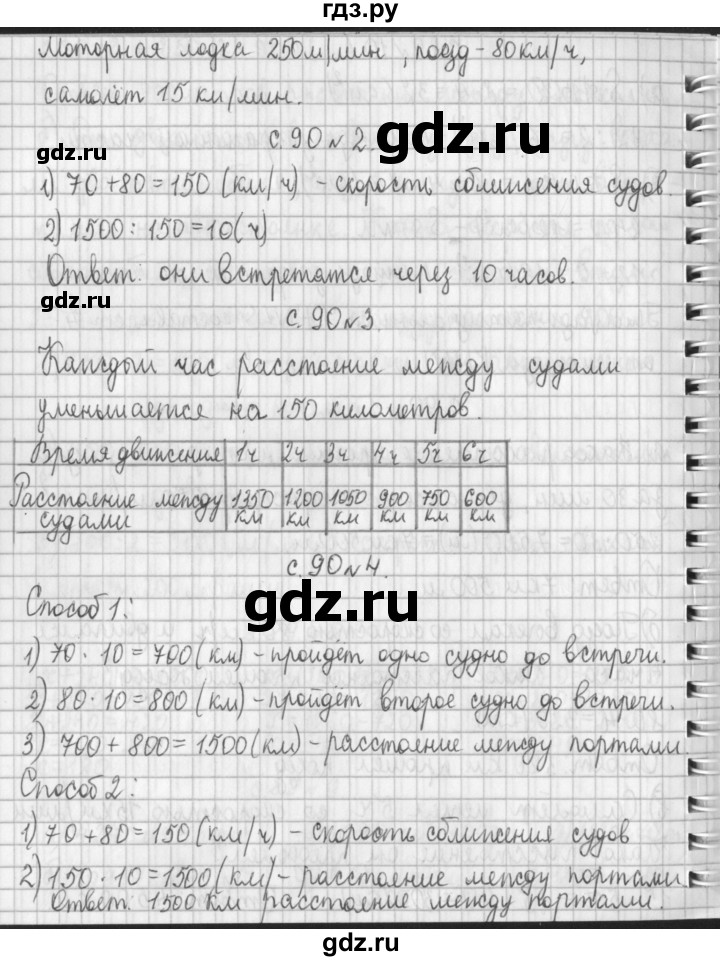 гдз.ру
Моторная лодка 250м/мин, поезд - 80км/ч,
самолёт 15 км/мин.
gdz.ru
с.90 №2.
gdz.ru
1) 70+80=150 (км/ч) - скорость сближения судов
2) 1500:150=10(ч)
Ответ: они встретятся через 10 часов.
gdz.ru
с.90 №3.
Каждый час расстояние между судами
уменьшается на 150 километров.
Время движения 1ч 2ч 3ч 4ч 5ч 6ч
Расстояние между судами 1350 км 1200 км 1050 км 900 км 750 км 600 км
с.90 №4.
gdz.ru
Способ 1:
1) 70·10=700(км) - пройдёт одно судно до встречи.
2) 80·10=800(км) - пройдёт второе судно до встречи.
3) 700+800=1500(км) - расстояние между порталами.
Способ 2:
gdz.ru
1) 70+80=150(км/ч) - скорость сближения судов
2) 150·10=1500(км) - расстояние между порталами.
Ответ: 1500 км расстояние между порталами.
gdz.ru